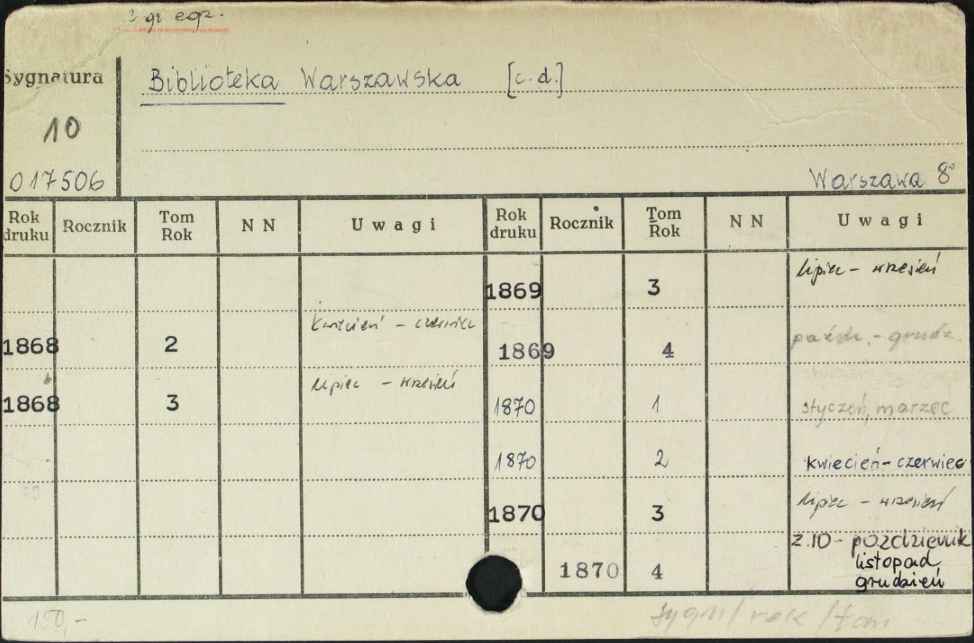 egz.
Sygnatura
Biblioteka Warszawska [c.d.]
10
017506
Warszawa 8°
Rok druku Rocznik Tom Rok N N Uwagi Rok druku Rocznik Tom Rok N N Uwagi
1869 3 lipiec - wrzesień
1868 2 kwiecień - czerwiec 1869 4 paźdz. - grudz.
1868 3 lipiec - wrzesień 1870 1 styczeń, marzec
1870 2 kwiecień - czerwiec
1870 3 lipiec - wrzesień
1870 4 z.10 - październik
listopad
grudzień
150,-
sygn / rok / tom